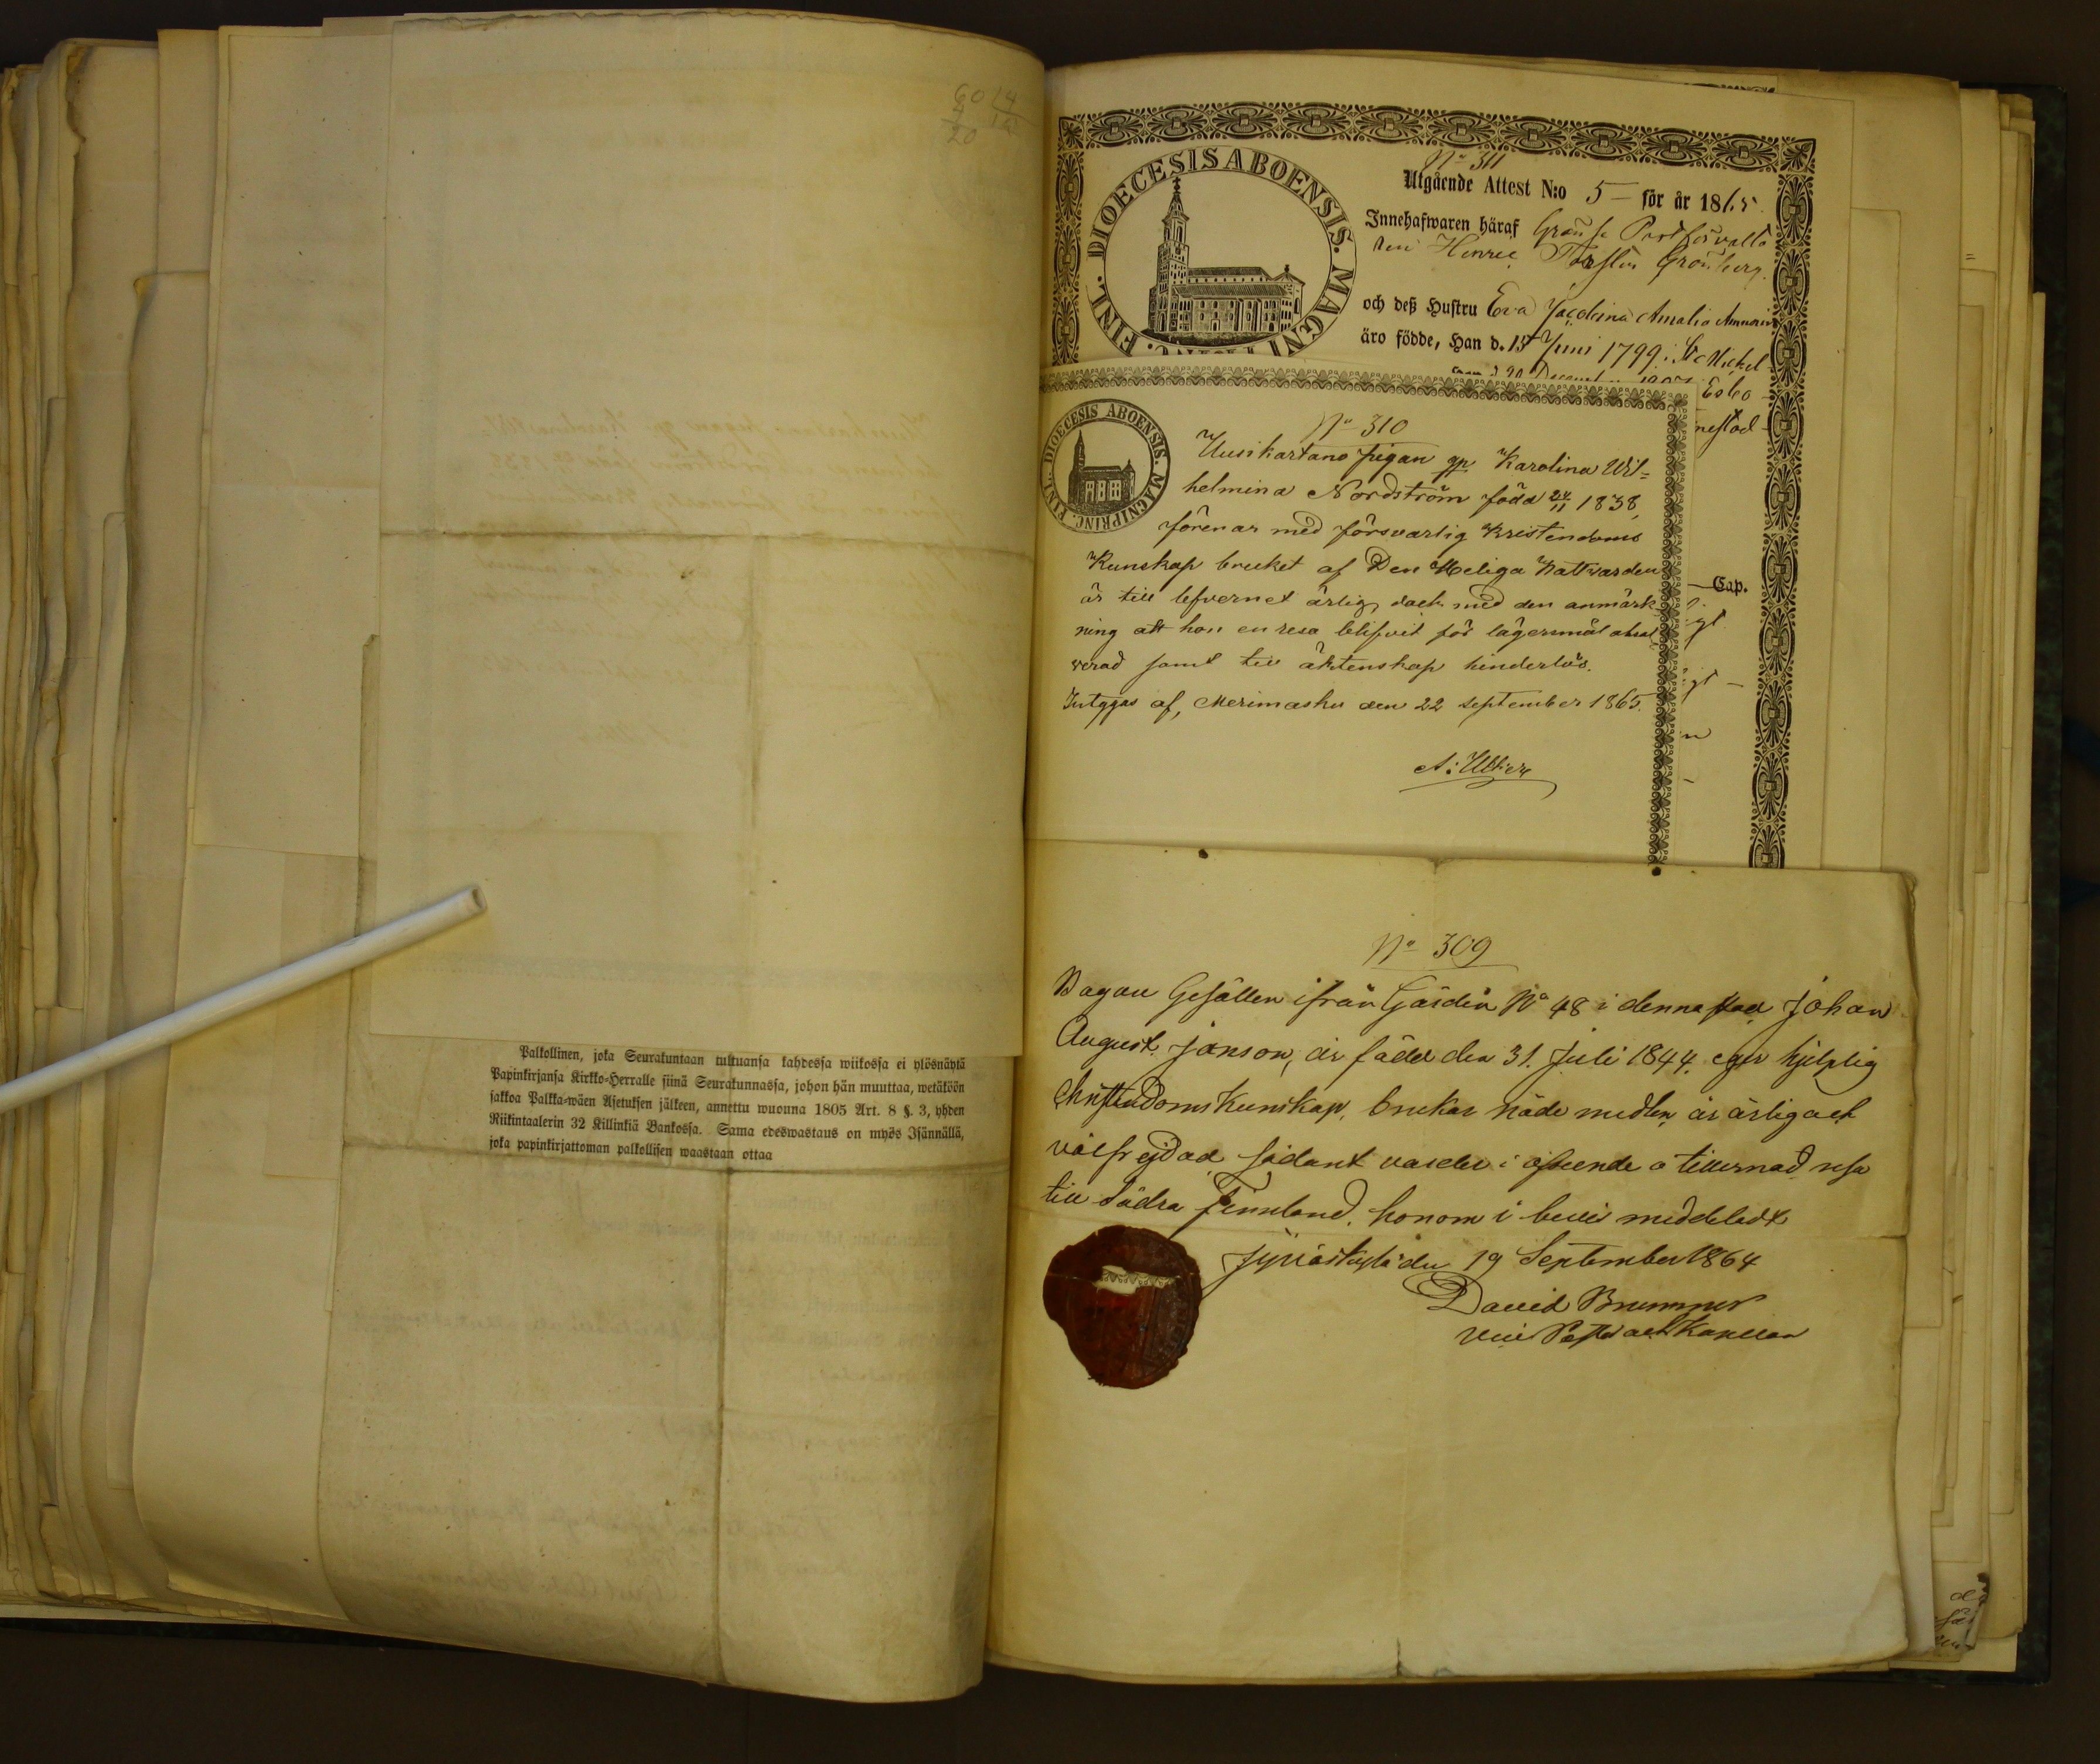 60 14
20
Palkollinen, joka Seurakuntaan tultuansa kahdessa wiikossa ei ylösnäytä
Papinkirjansa Kirkko-Herralle siinä Seurakunnassa, johon hän muuttaa, wetäköön
sakkoa Palkka-wäen Asetuksen jälkeen, annettu wuonna 1805 Art. 8 §. 3, yhden
Riikintaalerin 32 Killinkiä Bankossa. Sama edeswastaus on myös Isännällä,
joka papinkirjattoman palkollisen waastaan ottaa
DIOECESIS ABOENSIS. MAGNI FINL.
No 311
Utgående Attest N:o 5 för år 1865
Innehafwaren häraf Postförvalta
ren Henric Torsten Grönberg
och deß Hustru Eva Jacobina Amalia
äro födde, Han d. 15 Juni 1799 i St Michel
Esbo
Cap.
DIOECESIS ABOENSIS. MAGNI PRINC. FINL.
No 310
Uusikartano pigan gp Karolina Wil=
helmina Nordström född 24/11 1838,
förenar med försvarlig Kristendoms
Kunskap bruket af Den Heliga Nattvarden
är till lefvernet ärlig, dock med den anmärk
ning att hon en resa blifvit för lägersmål absol
verad samt till äktenskap hinderlös.
Intygas af, Merimasku den 22 September 1865.
No 309
Bagare Gesällen ifrån Gården No 48 i denna stad Johan
August Janson, är född den 31. Juli 1844. eger hjelplig
Christendoms Kunskap, brukar nåde medlen, är ärlig och
välfrejdad, sådant varder i afseende å tillernad resa
till Södra Finnland, honom i bevis meddeladt
Jyväskylä den 19 September 1864
David Brummer
Vice Pastor och Kapellan